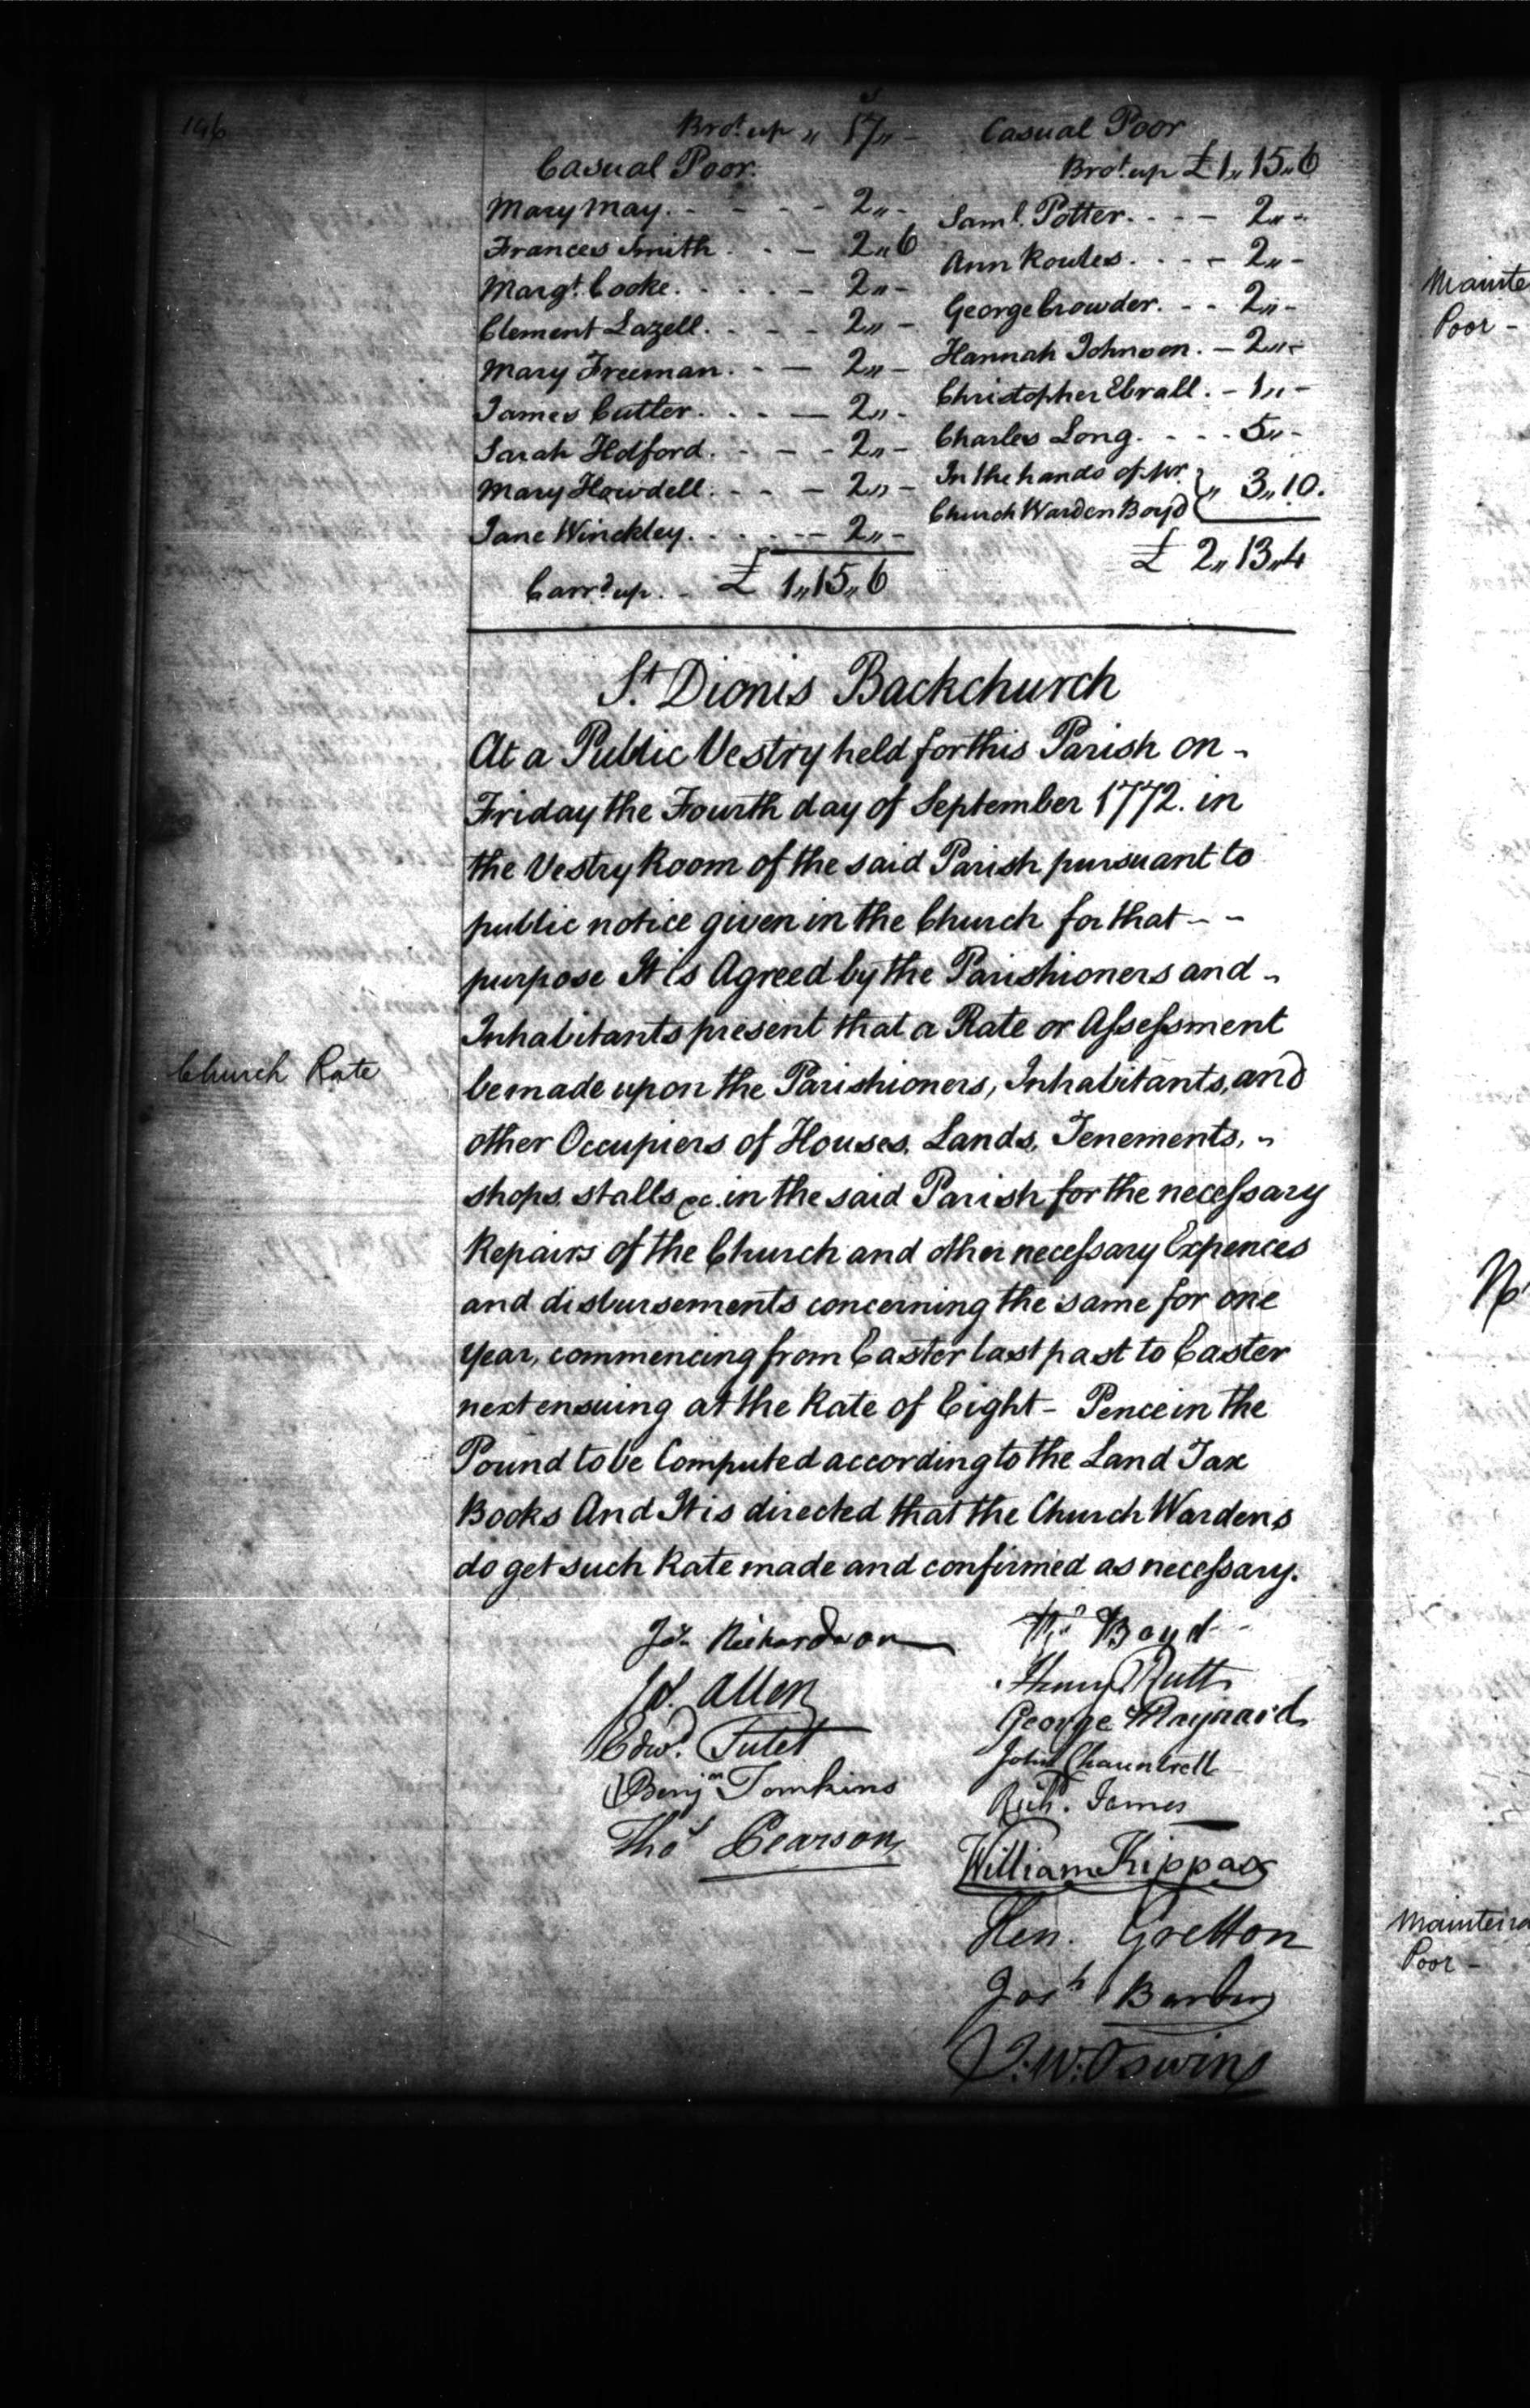 196
Brot. up „ 17„ -
Casual Poor.
Mary May. - - - - 2„ -
Frances Smith - - - 2„6
Margt. Cooke. - - - - 2„ -
Clement Lazell. - - - 2„ -
Mary Freeman. - - 2„ -
James Cutler. - - - 2„ -
Sarah Holford. - - - 2„ -
Mary Howdell. - - - 2„ -
Jane Winckley. - - - 2„ -
Carrd. up. - £ 1„15„6
Casual Poor
Brot. up £1„15„6
Saml. Potter. - - - 2„ -
Ann Rowles. - - - 2„ -
George Crowder. - - 2„ -
Hannah Johnson. - 2„ -
Christopher Ebrall. - 1„ -
Charles Long. - - - 5„ -
In the hands of Mr.
Church Warden Boyd „ 3„10.
£ 2„13„4
St. Dionis Backchurch
At a Public Vestry held for this Parish on -
Friday the Fourth day of September 1772. in
the Vestry Room of the said Parish pursuant to
public notice given in the Church for that - -
purpose It is Agreed by the Parishioners and -
Inhabitants present that a Rate or Assessment
Church Rate
be made upon the Parishioners, Inhabitants, and
other Occupiers of Houses, Lands, Tenements, -
shops, stalls &c. in the said Parish for the necessary
Repairs of the Church and other necessary Expences
and disbursements concerning the same for one
Year, commencing from Easter last past to Easter
next ensuing at the Rate of Eight - Pence in the
Pound to be Computed according to the Land Tax
Books And It is directed that the Church Wardens
do get such Rate made and confirmed as necessary.
Jos. Richardson
Allen
Edwd. Tutet
Benjn. Tomkins
Thos. Pearson
Thos. Boyd
Henry Rutt
George Maynard
John Chauntrell
Richd. James
William Kippax
Hen. Gretton
Josh. Barber
J. W. Oswins
Mainte
Poor -
Mainten
Poor -